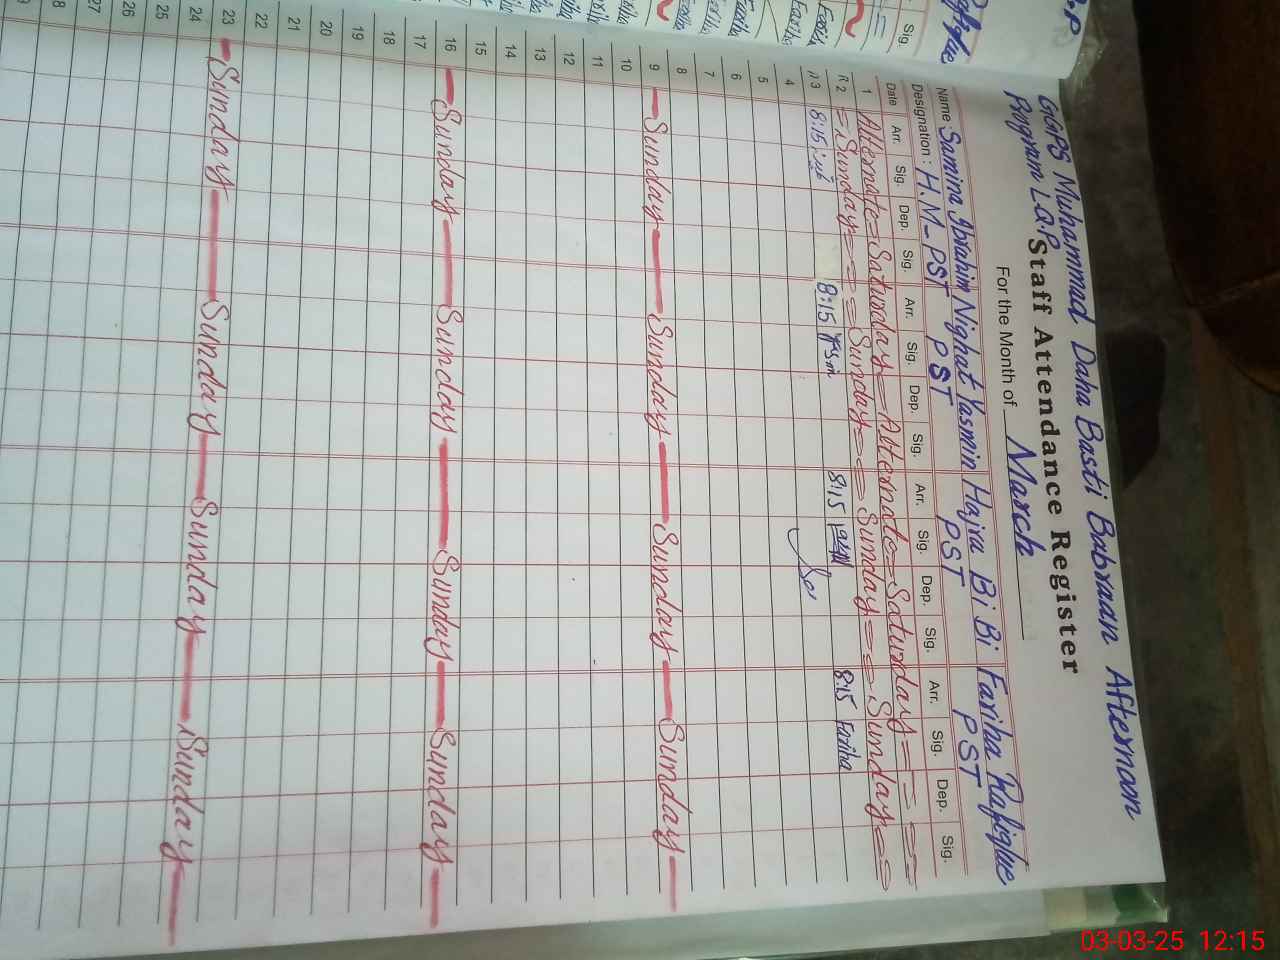 GGPS Muhammad Daha Basti Babraan Afternoon
Program L.Q.P
Staff Attendance Register
For the Month of March
Name Samina Ibrahim Nighat Yasmin Hajra Bi Bi Fariha Rafique
Designation : H.M-PST PST PST PST
Date Arr. Sig. Dep. Sig. Arr. Sig. Dep. Sig. Arr. Sig. Dep. Sig. Arr. Sig. Dep. Sig.
1 Alternate = Saturday = Alternate = Saturday = = =
2 = Sunday = = = Sunday = = = Sunday = = = Sunday = =
3 8:15 8:15 8:15 8:15 Fariha
4
5
6
7
8
9 Sunday Sunday Sunday Sunday
10
11
12
13
14
15
16 Sunday Sunday Sunday Sunday
17
18
19
20
21
22
23 Sunday Sunday Sunday Sunday
24
25
26
27
Sig.
Fariha
03-03-25 12:15